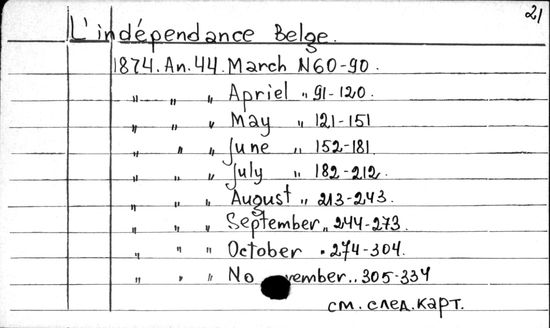 21
L'indépendance Belge.
1874. An. 44. March N60-90.
" " " Apriel " 91-120.
" " " May " 121-151
" " " June " 152-181
" " " July " 182-212.
" " " August " 213-243.
" " " September " 244-273.
" " " October " 274-304.
" " " November " 305-334
см. след. карт.